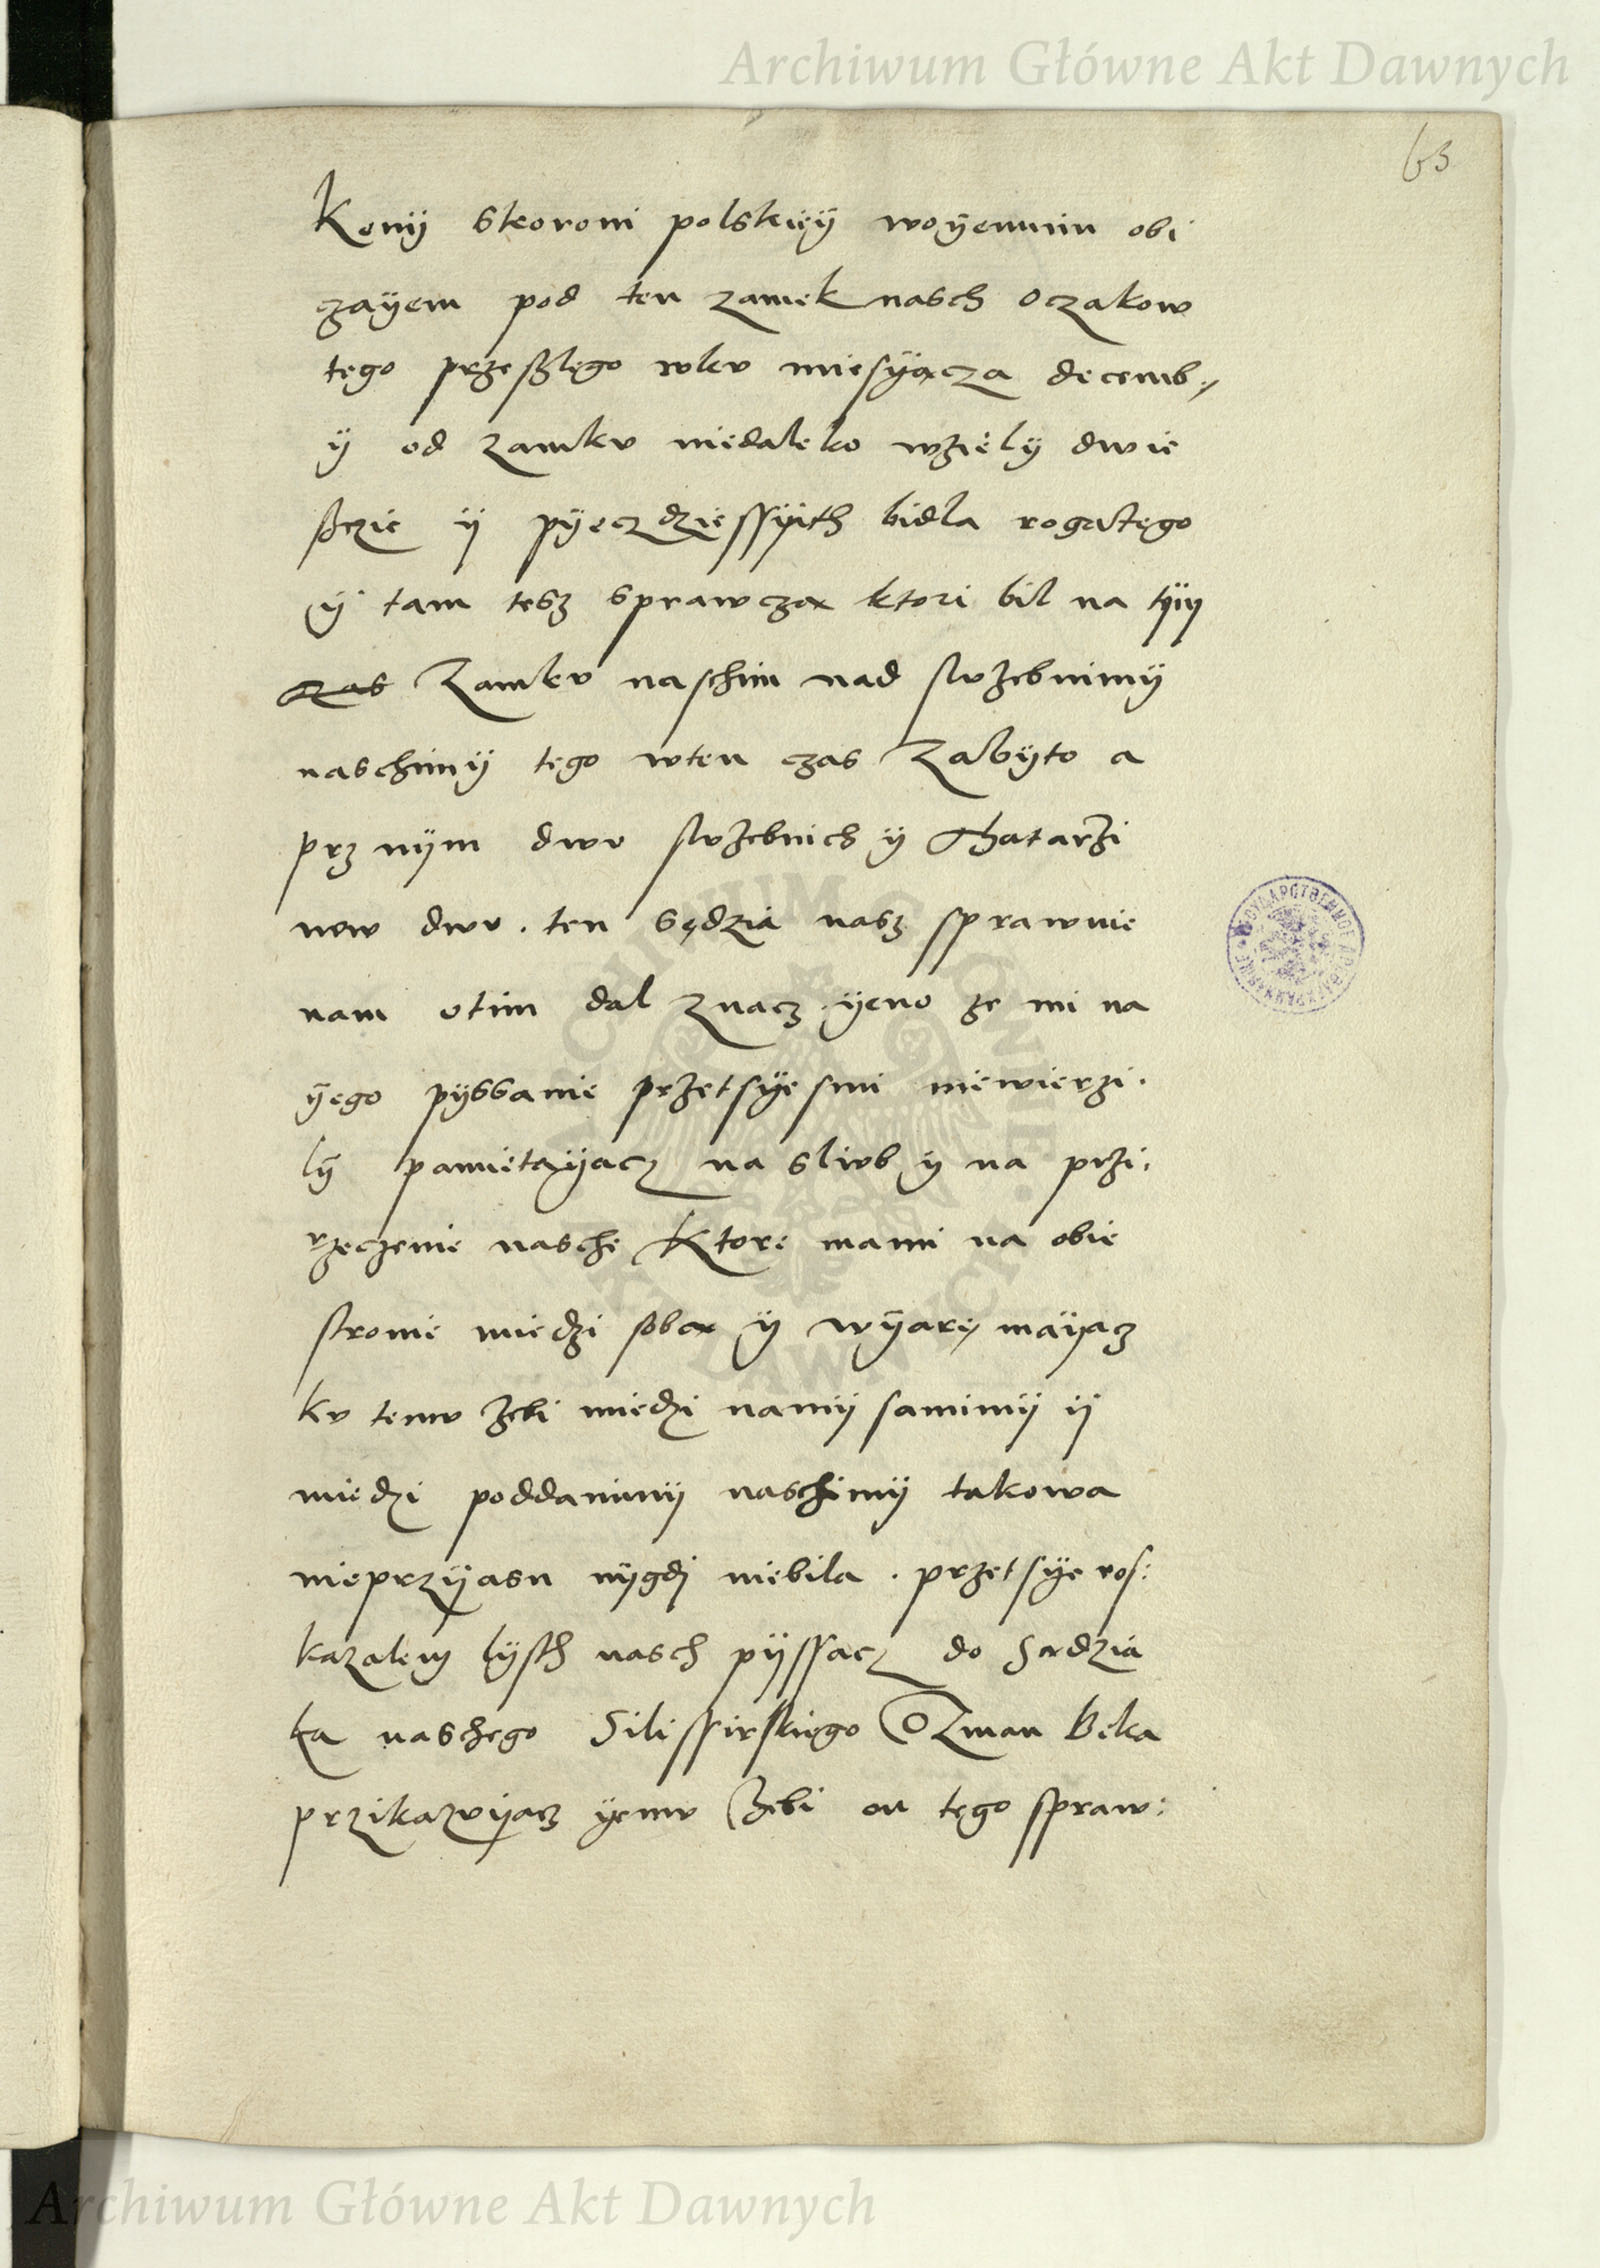 Archiwum Główne Akt Dawnych
63
Konÿ skoroni polskiÿ woÿennim obi
czaÿem pod ten zamek nasch Oczakow
tego przeszlego rokv miesÿącza decemb.
ÿ od zamkv niedaleko wzielÿ dwie
sczie ÿ pÿeczdziessÿąth bidla rogatego
ÿ tam tesz sprawcza ktori bil na tÿÿ
czas Zamkv naschim nad slvzebnimÿ
naschimÿ tego wten czas Zabyto a
prz nÿm dwv slvzebnich ÿ Thatarzi
now dwv. ten sędzia nasz sprawnie
nam otim dal znacz ÿeno ze mi na
ÿego pÿssanie przetsÿesmi niewierzi.
lÿ pamietaÿącz na sliwb ÿ na przi:
rzeczenie nasche Ktore mami na obie
stronie miedzi soba ÿ wÿarę maÿącz
kv temv zebi miedzi namÿ samimÿ ÿ
miedzi poddanimÿ naschimÿ takowa
nieprzÿasn nÿgdi niebila. przetsÿe ros:
kazalem lÿsth nasch pÿssacz do Sądzia
ka naschego Silissirskiego Ozman Beka
przikazvÿącz ÿemv zebi on tego spraw:
Archiwum Główne Akt Dawnych